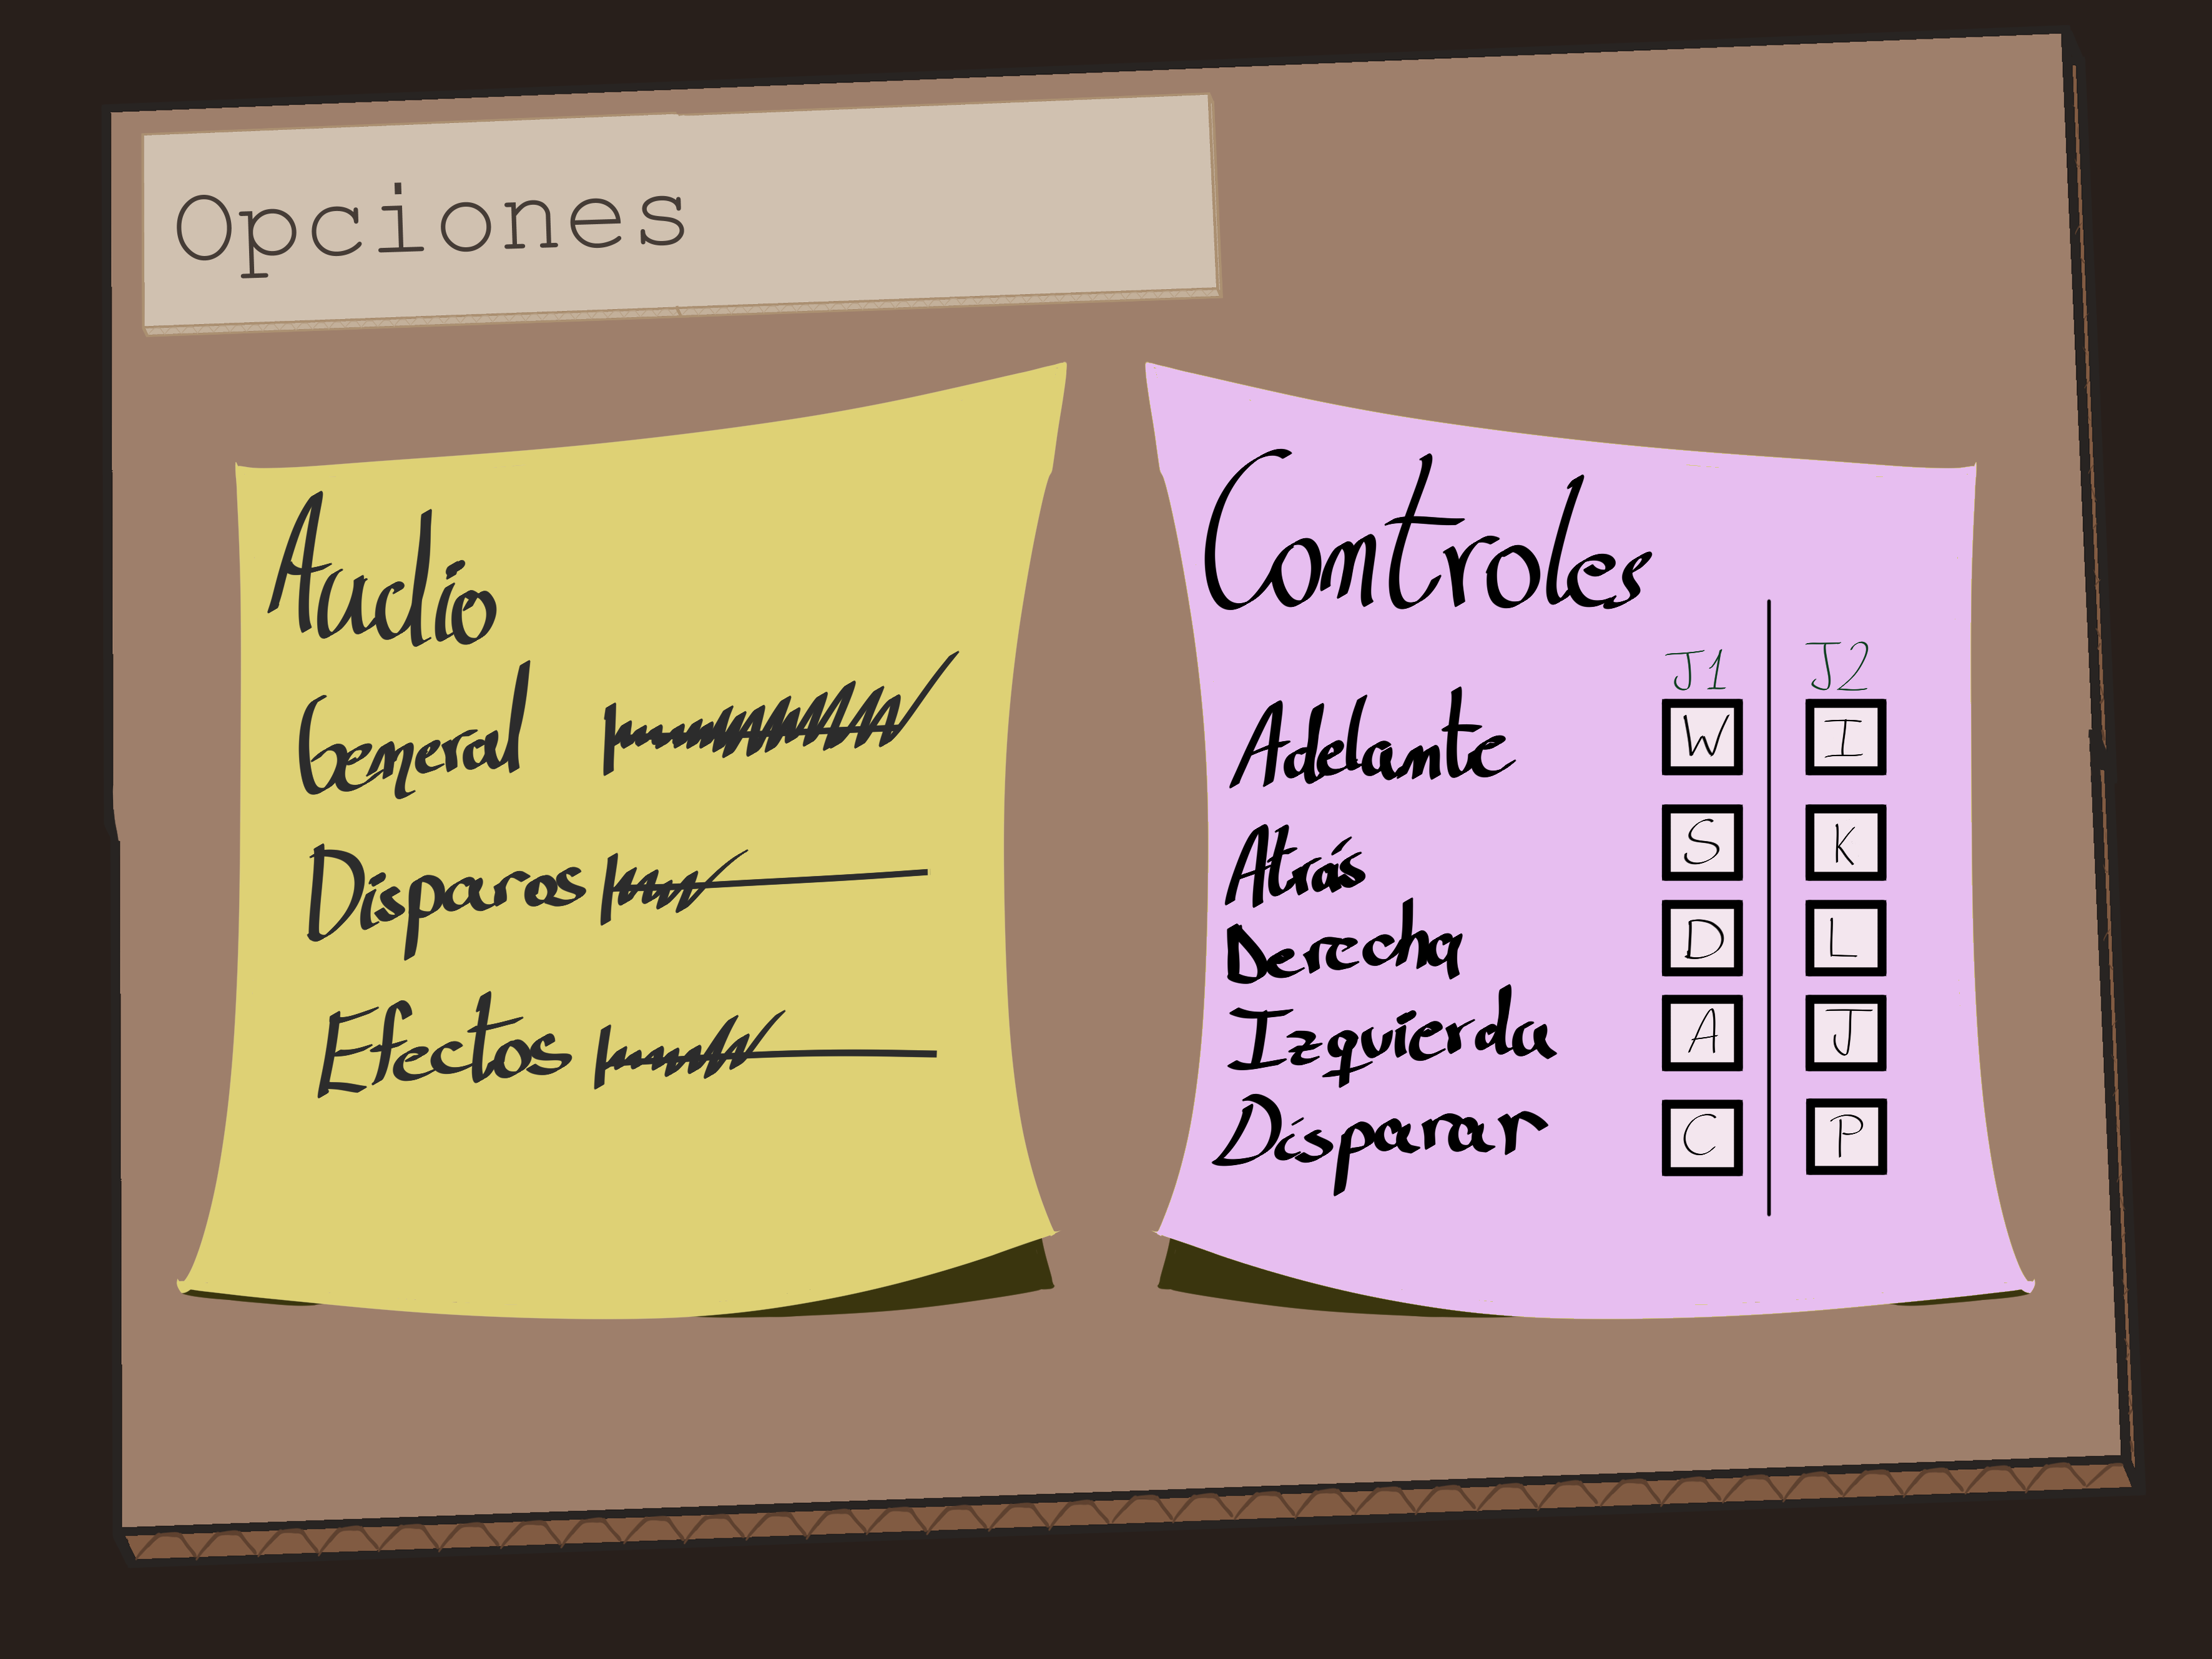 Opciones
Audio
General
Disparos
Efectos
Controles
J1 J2
Adelante W I
Atrás S K
Derecha D L
Izquierda A J
Disparar C P